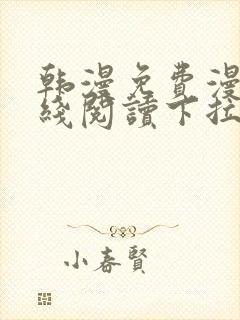 韩漫免費漫
綫閱讀下拉
小春賢